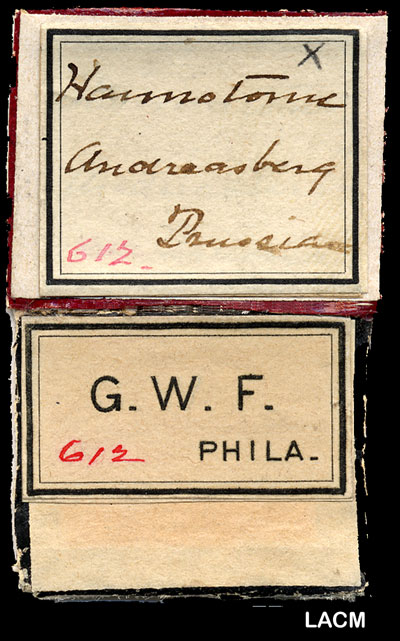 X
Harmotome
Andreasberg
Prussia
612
G. W. F.
612 PHILA.
LACM